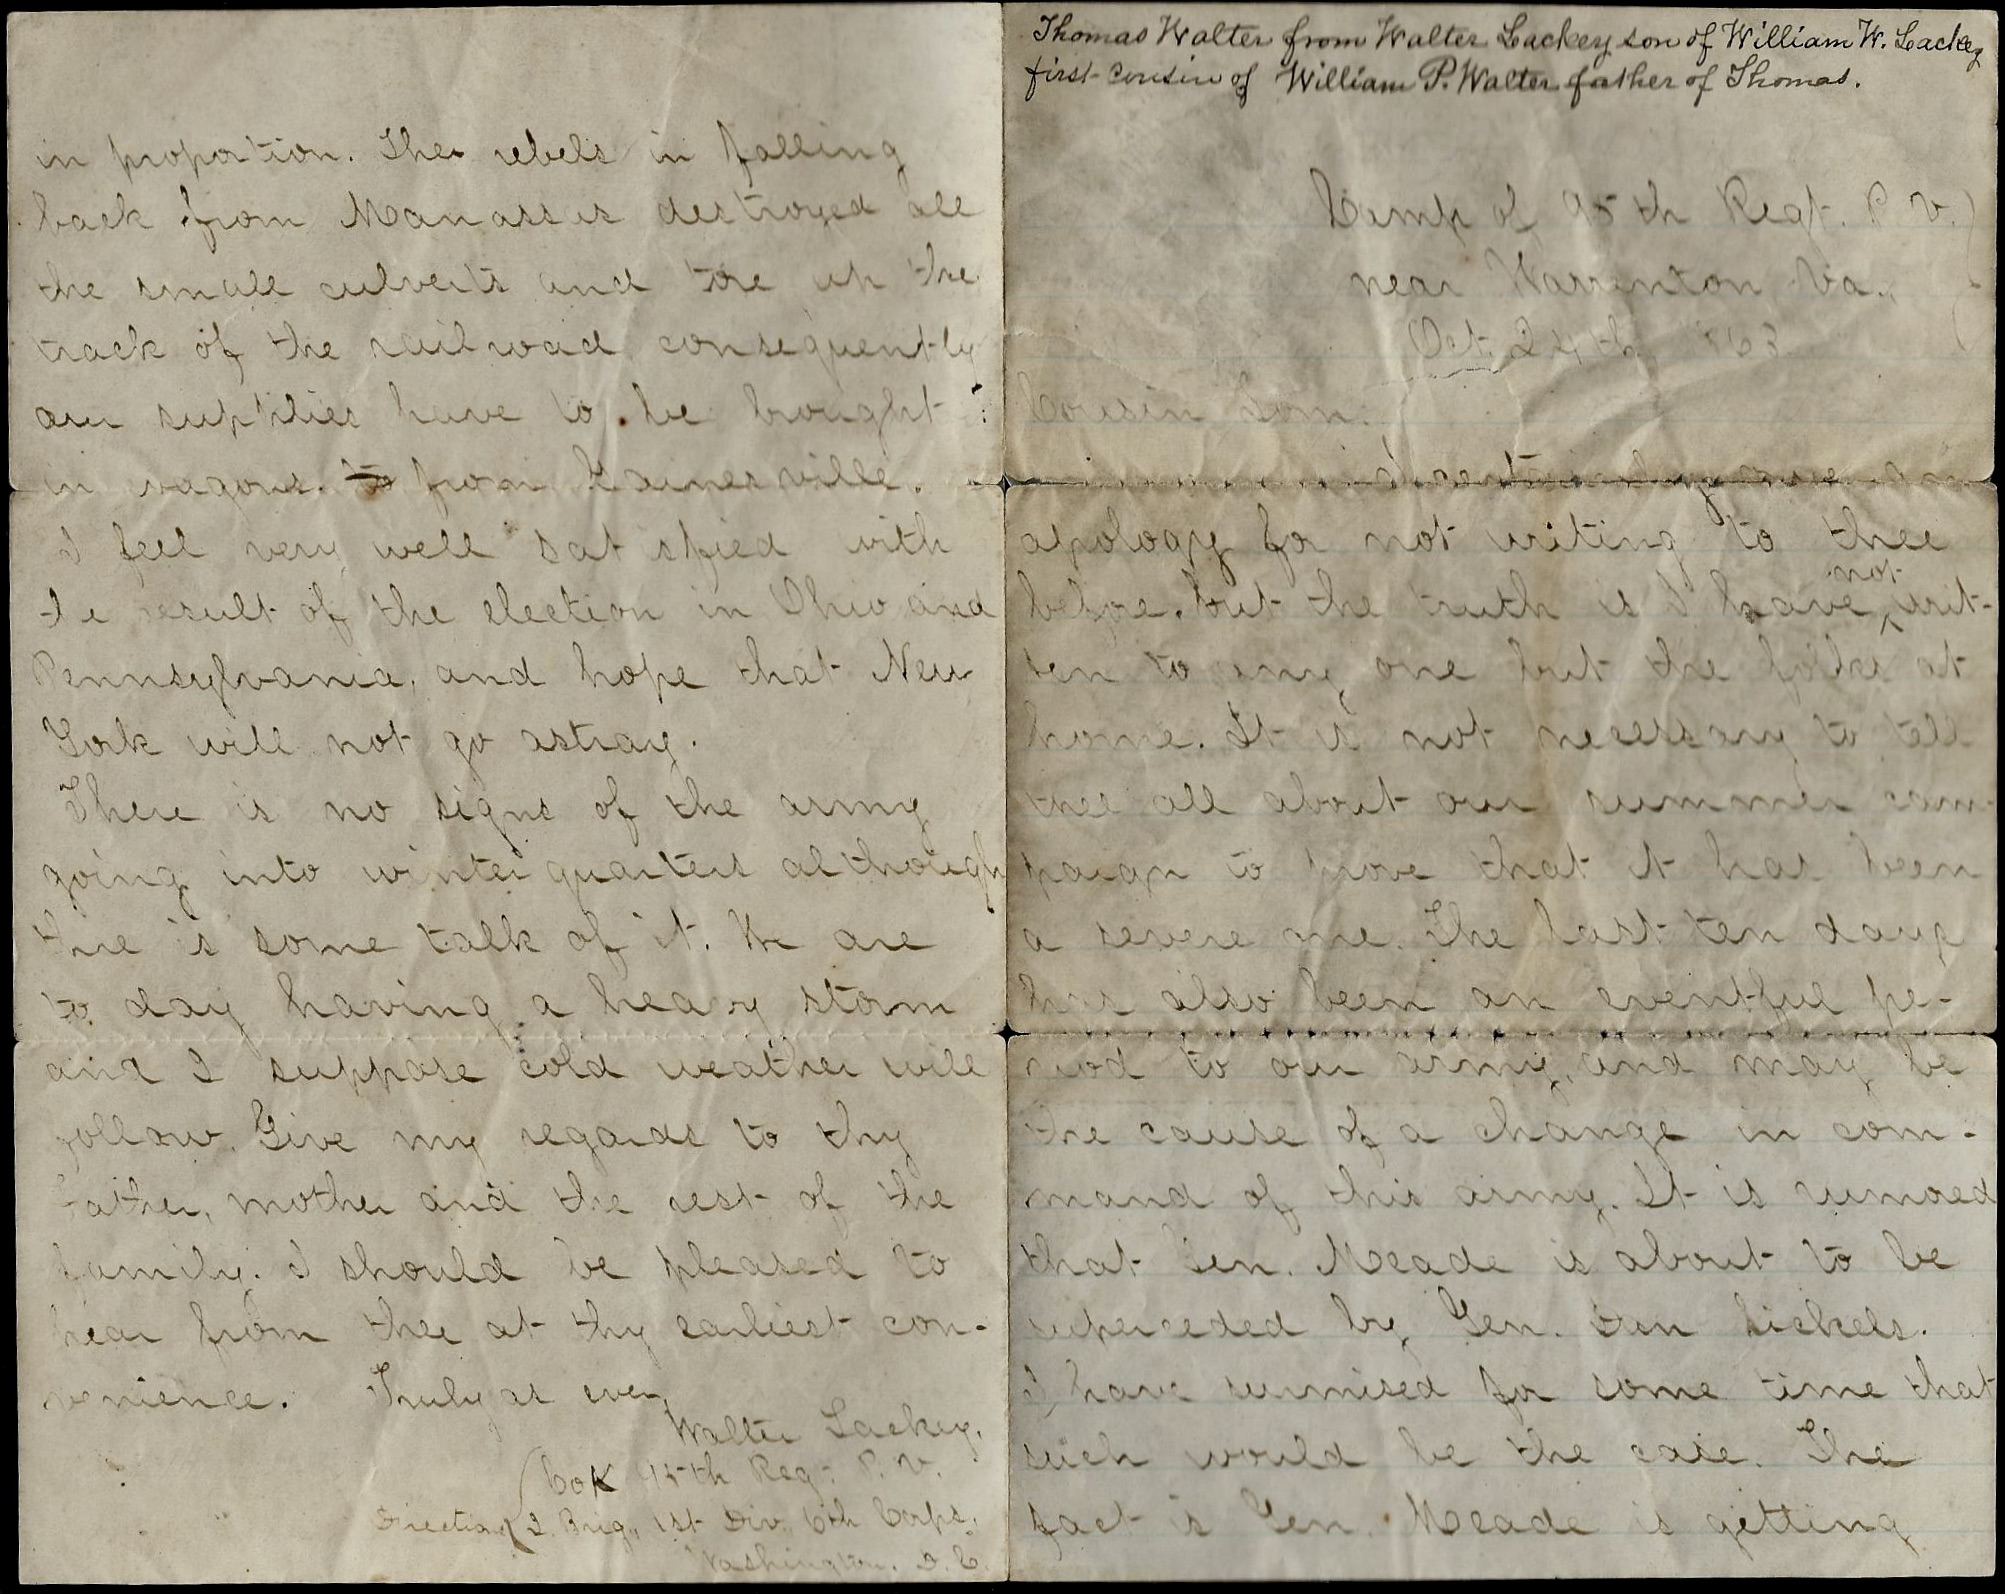 Thomas Walter from Walter Lackey son of William W. Lackey
first cousin of William P. Walter father of Thomas.
Camp of 95th Regt. P. V.
near Warrenton Va.,
Oct. 24th 1863
Cousin Tom.
apology for not writing to thee
before. but the truth is I have not writ-
ten to any one but the folks at
home. It is not necessary to tell
thee all about our summer cam-
paign to prove that it has been
a severe one. The last ten days
has also been an eventful pe-
riod to our army, and may be
the cause of a change in com-
mand of this army. It is rumored
that Gen. Meade is about to be
superceded by Gen. Dan Sickels.
I have surmised for some time that
such would be the case. The
fact is Gen. Meade is getting
in proportion. The rebels in falling
back from Manassas destroyed all
the small culverts and tore up the
track of the railroad, consequently
our supplies have to be brought
in wagons to from Gainesville.
I feel very well satisfied with
the result of the election in Ohio and
Pennsylvania, and hope that New
York will not go astray.
There is no signs of the army
going into winter quarters although
there is some talk of it. We are
to day having a heavy storm
and I suppose cold weather will
follow. Give my regards to thy
father, mother and the rest of the
family. I should be pleased to
hear from thee at thy earliest con-
venience. Truly as ever,
Walter Lackey,
Co K 95th Reg. P. V.
Direction 2. Brig., 1st Div. 6th Corps,
Washington, D. C.